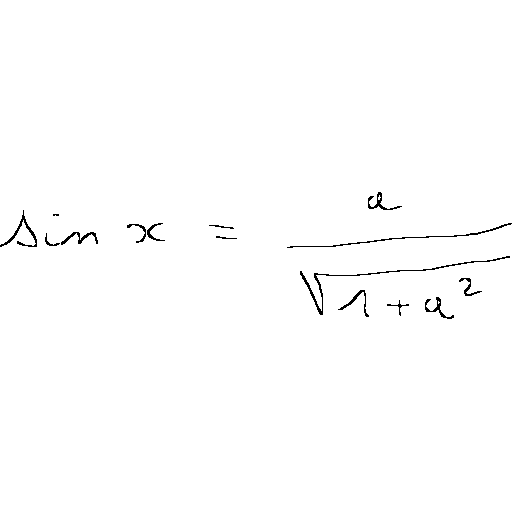 \sin x = \frac{a}{\sqrt{1+a^2}}